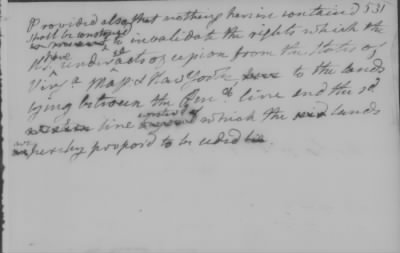 Provided also that nothing herein contained 531
shall be construed
to invalidate the rights which the
U.S. have under acts of cession from the States of
Virga Massts & New York to the lands
lying between the Pena line and the sd
line which the sd lands
are hereby proposed to be ceded